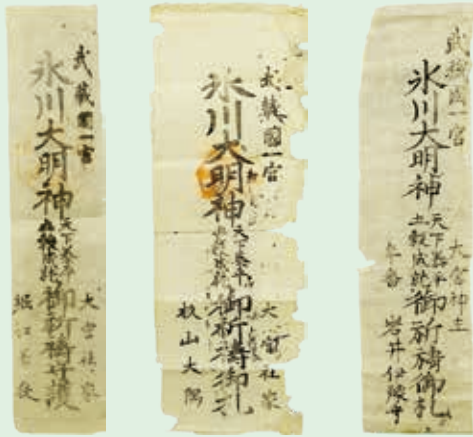 武蔵國一宮
氷川大明神
天下泰平
五穀成就
御祈祷守護
大宮社家
堀江
武蔵國一宮
氷川大明神
天下泰平
五穀成就
御祈祷御札
大宮社家
杦山大隅
武蔵國一宮
氷川大明神
天下泰平
五穀成就
御祈祷御札
大宮神主
岩井伊豫守